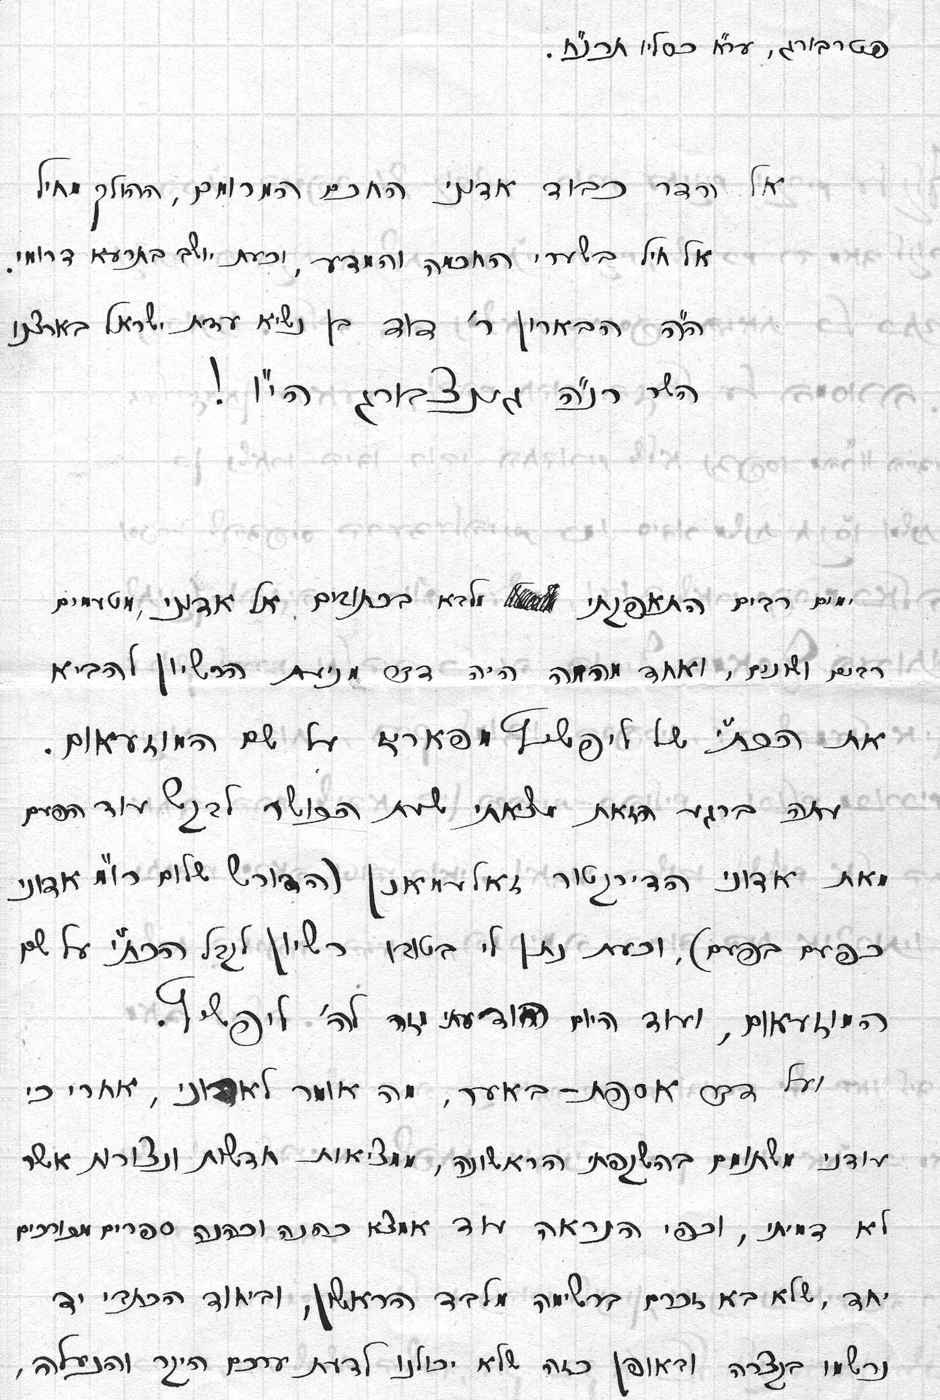 פטרבורג, ער״ח כסליו תרנ״ח.
אל הדר כבוד אדוני החכם המרומם, ההולך מחיל
אל חיל בשערי החכמה והמדע, וכעת יושב בתרעא דרומי.
ה״ה הבארון ר׳ דוד בן נשיא עדת ישראל בארצנו
השר רנ״ה גינצבורג הי״ו!
ימים רבים התאפקתי מלבא בכתובים אל אדוני, מטעמים
רבים ושונים, ואחד מהמה היה דבר מניעת הרשיון להביא
את הכת״י של ליפשיץ מפאריז על שם המוזעאום.
עתה ברגע הזאת מצאתי שעת הכושר לבקש עוד הפעם
מאת אדוני הדירקטור זאלעמאנן (הדורש שלום רו״מ אדוני
כפעם בפעם), וכעת נתן לי בטובו רשיון לקבל הכת״י על שם
המוזעאום, ועוד היום הודיעתי מזה לה׳ ליפשיץ.
ועל דבר אספת–באער, מה אומר לאדוני, אחרי כי
עודני משתומם בהשקפתי הראשונה, ממציאות חדשות ונצורות אשר
לא דמיתי, וכפי הנראה עוד אמצא כהנה וכהנה ספרים מכורכים
יחד, שלא בא זכרם ברשימה מלבד הראשון, וביחוד הכתבי יד
נרשמו בקצרה ובאופן כזה שלא יכולנו לדעת ערכם היקר והנעלה,